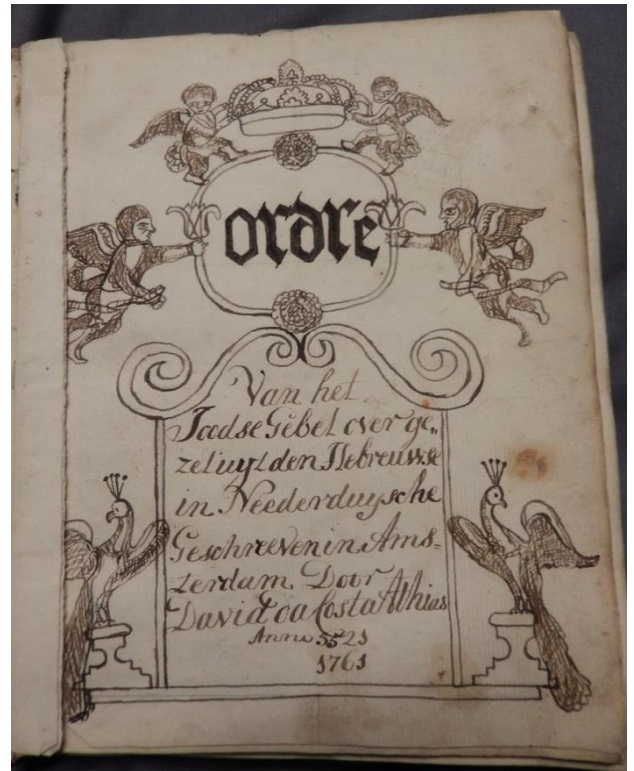 ordre
Van het
Joodse Gebet over ge„
zet uyt den Hebreuwse
in Neederduysche
Geschreeven in Ams„
terdam Door
David da Costa Athias
Anno 5521
1761